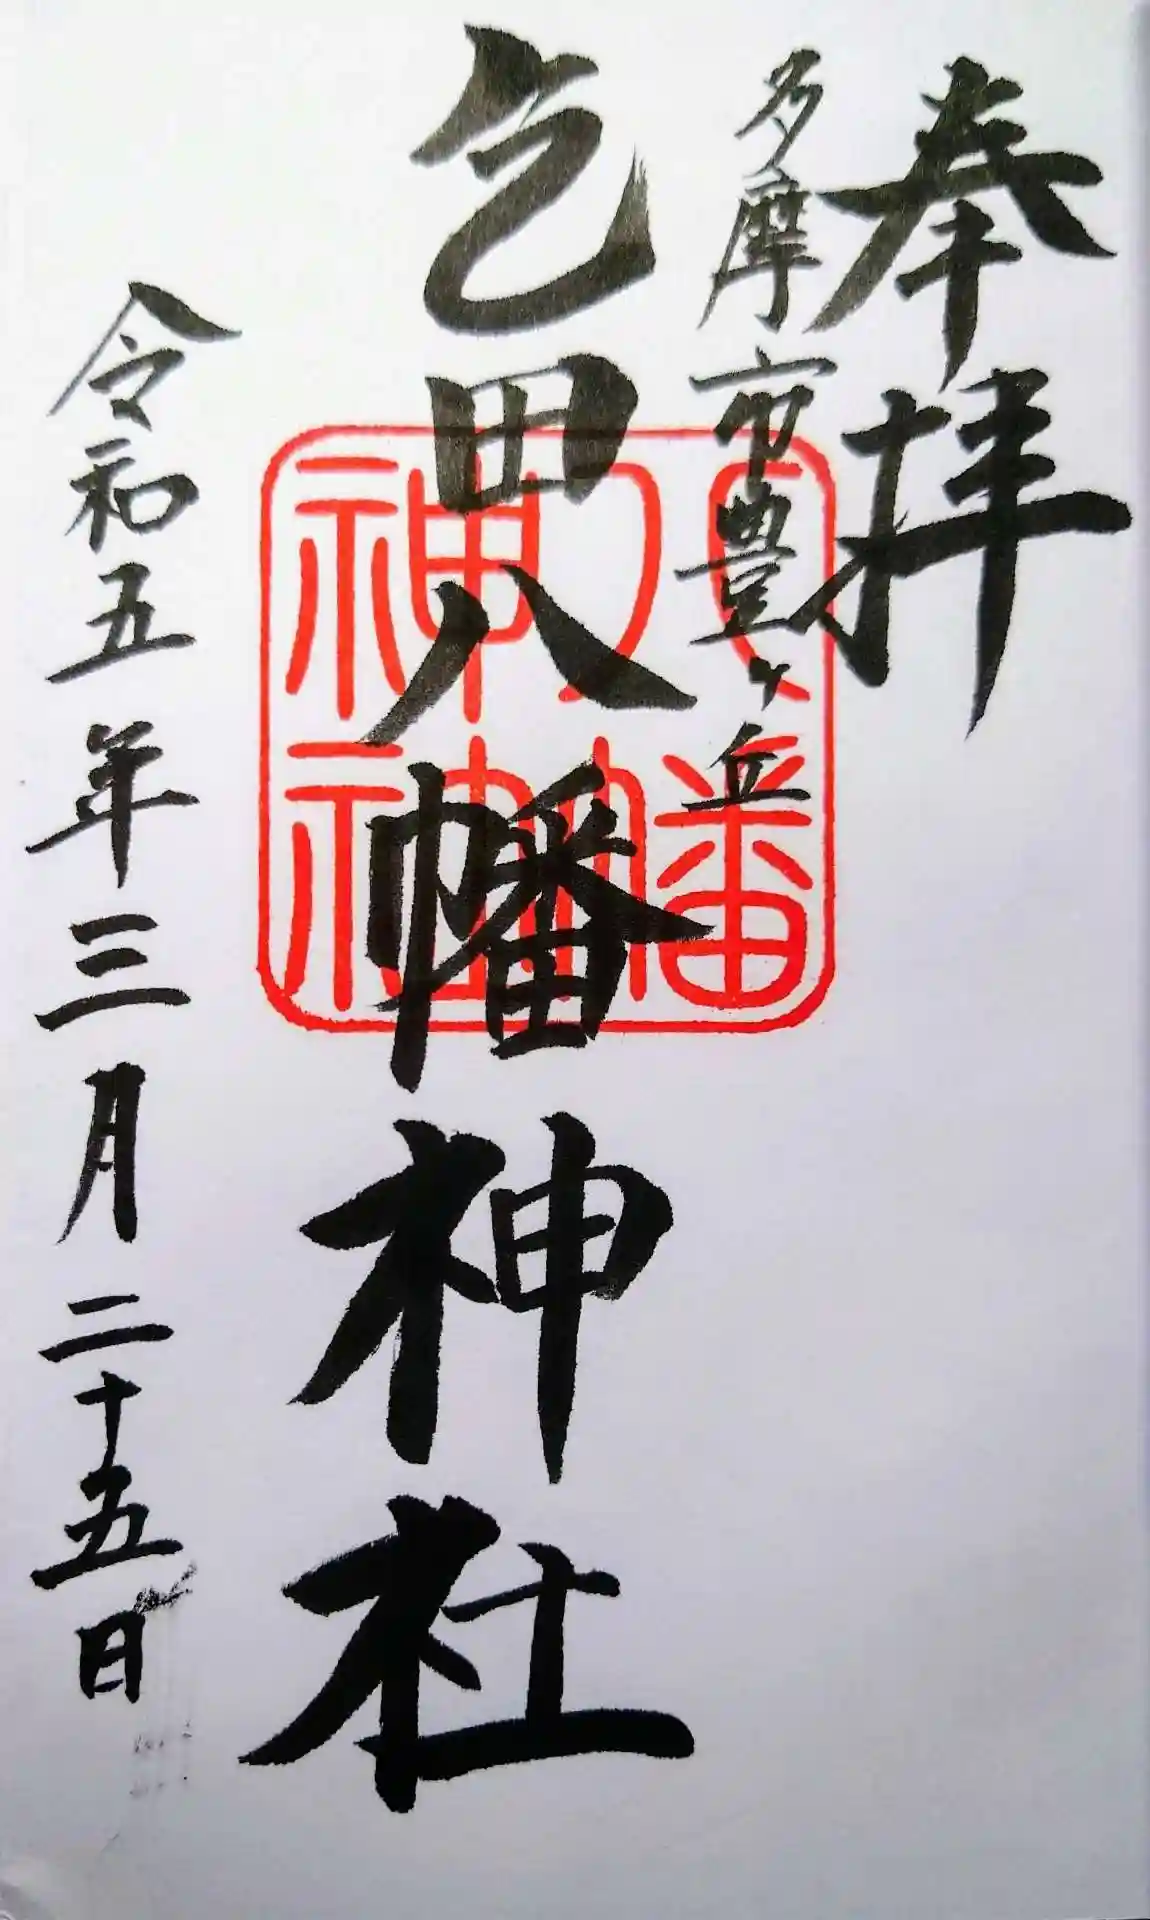 奉拝
多摩市豊ヶ丘
乞田八幡神社
令和五年三月二十五日